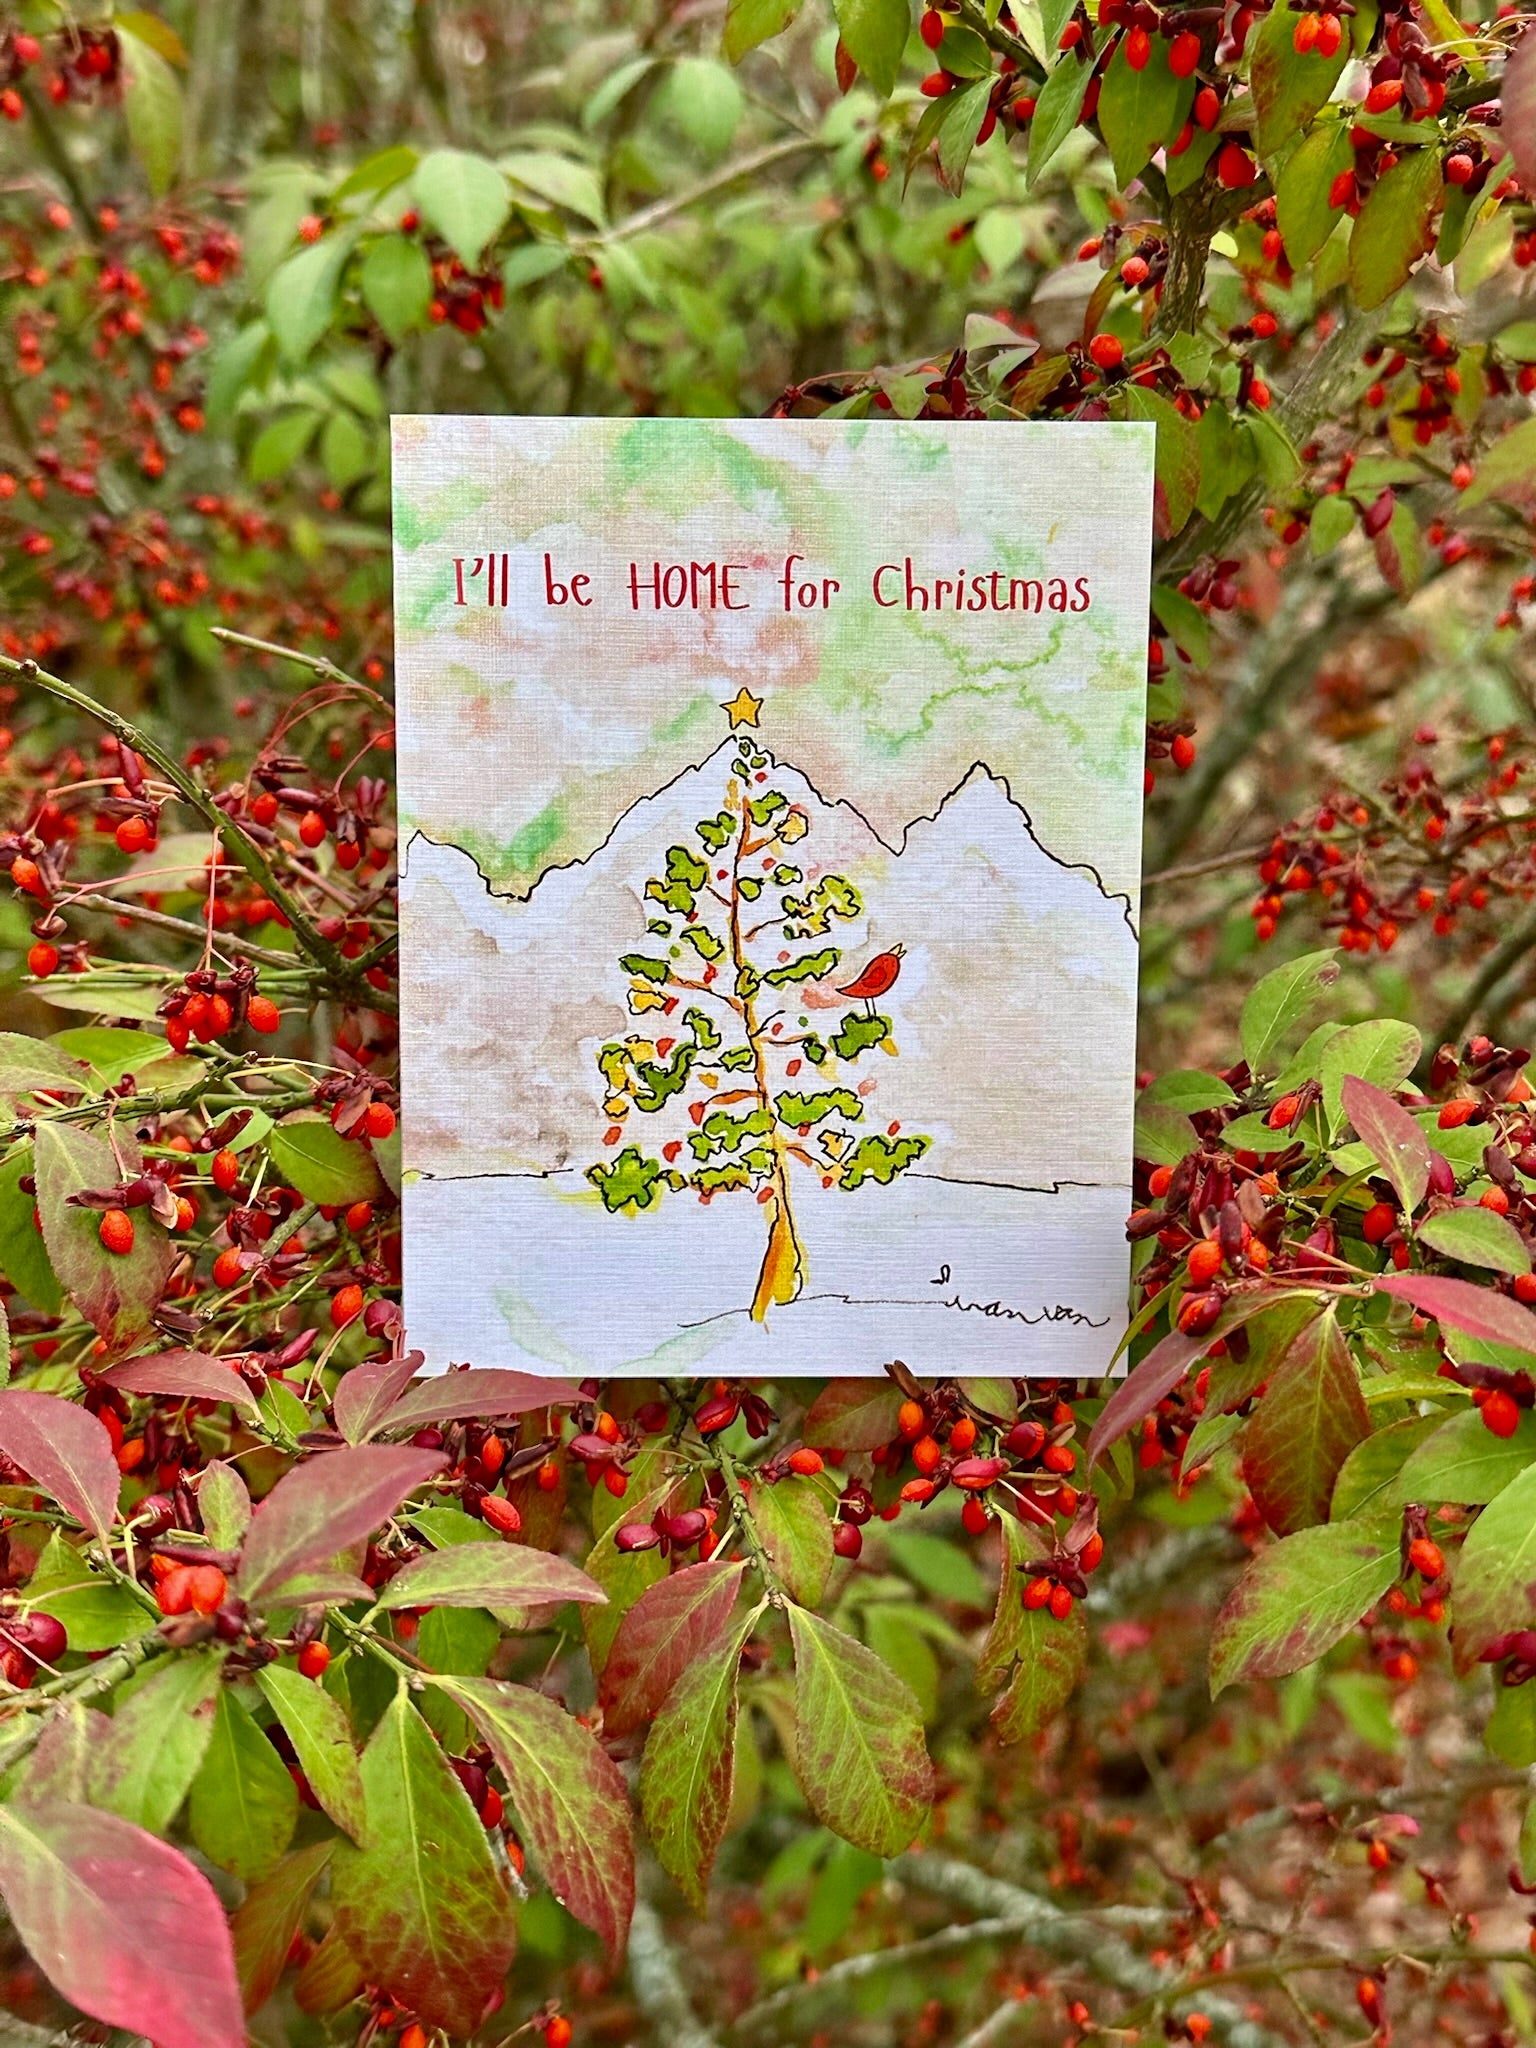 I'll be HOME for Christmas